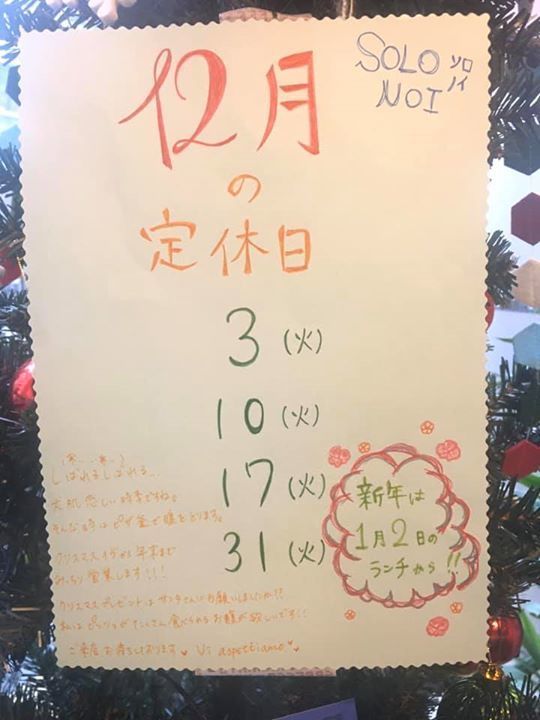 12月
SOLO ソロ
NOI ノイ
の
定休日
3 (火)
10 (火)
17 (火)
31 (火)
しばれるしばれる…
人肌恋しい時季ですね。
そんな時はピザ釜で暖をとります。
クリスマスイヴから年末まで
みっちり営業します!!!
クリスマスプレゼントはサンタさんにお願いしましたか!?
私はピッツァがたくさん食べられるお腹が欲しいです!!
ご来店お待ちしております♥ Vi aspettiamo♥
新年は
1月2日の
ランチから!!